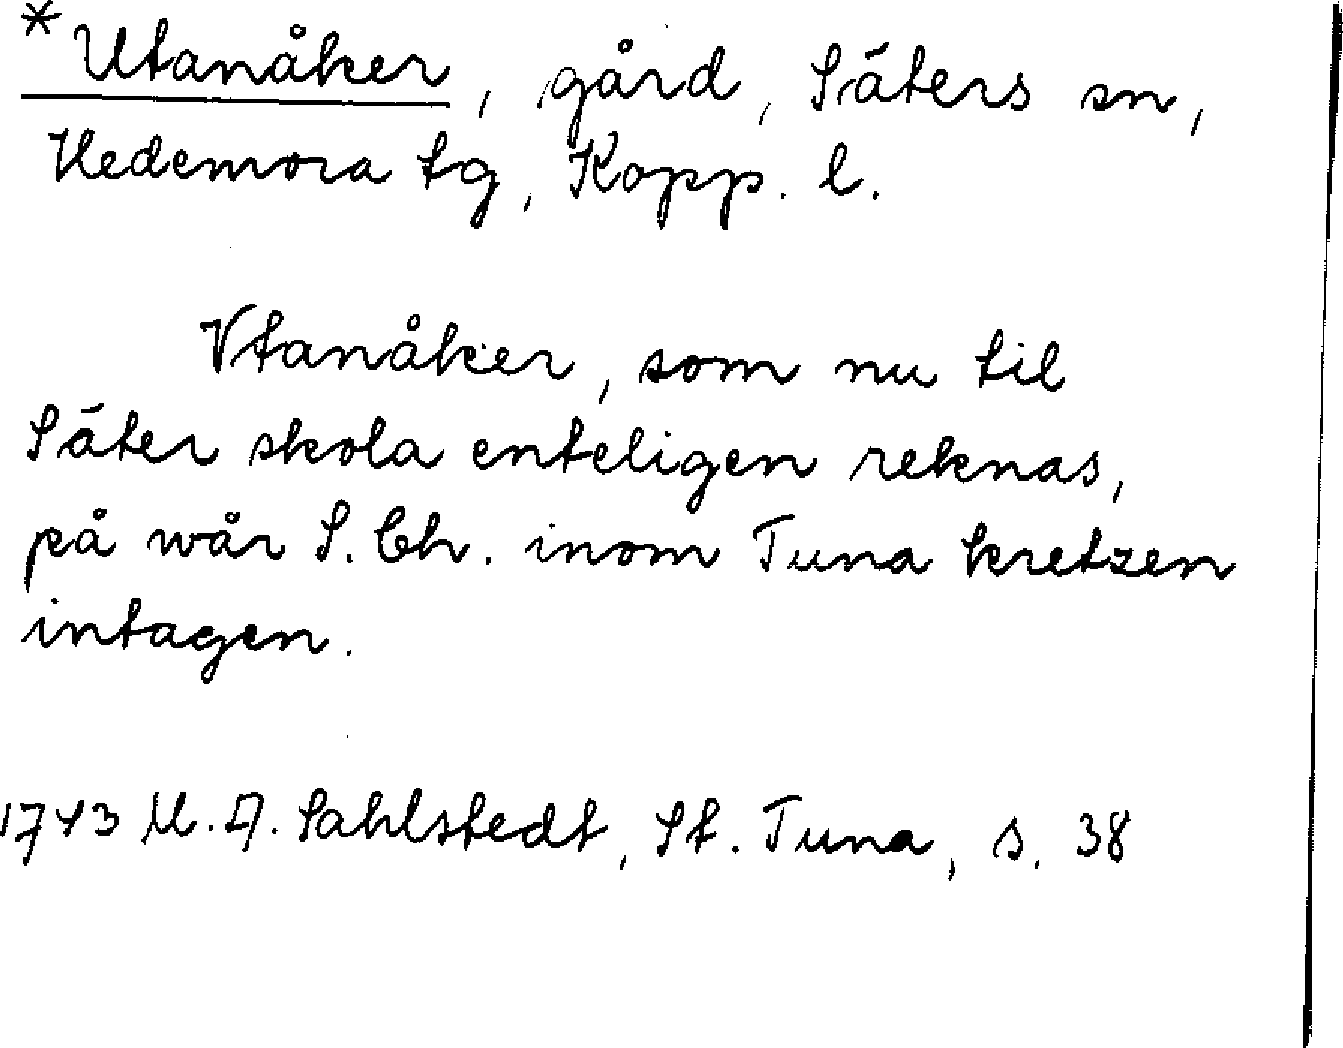 * Utanåker, gård, Säters sn,
Hedemora tg, Kopp. l.
Vtanåker, som nu til
Säter skola enteligen reknas,
på wår S. Ch. inom Tuna kretzen
intagen.
1743 M. A. Sahlstedt, St. Tuna, s. 38